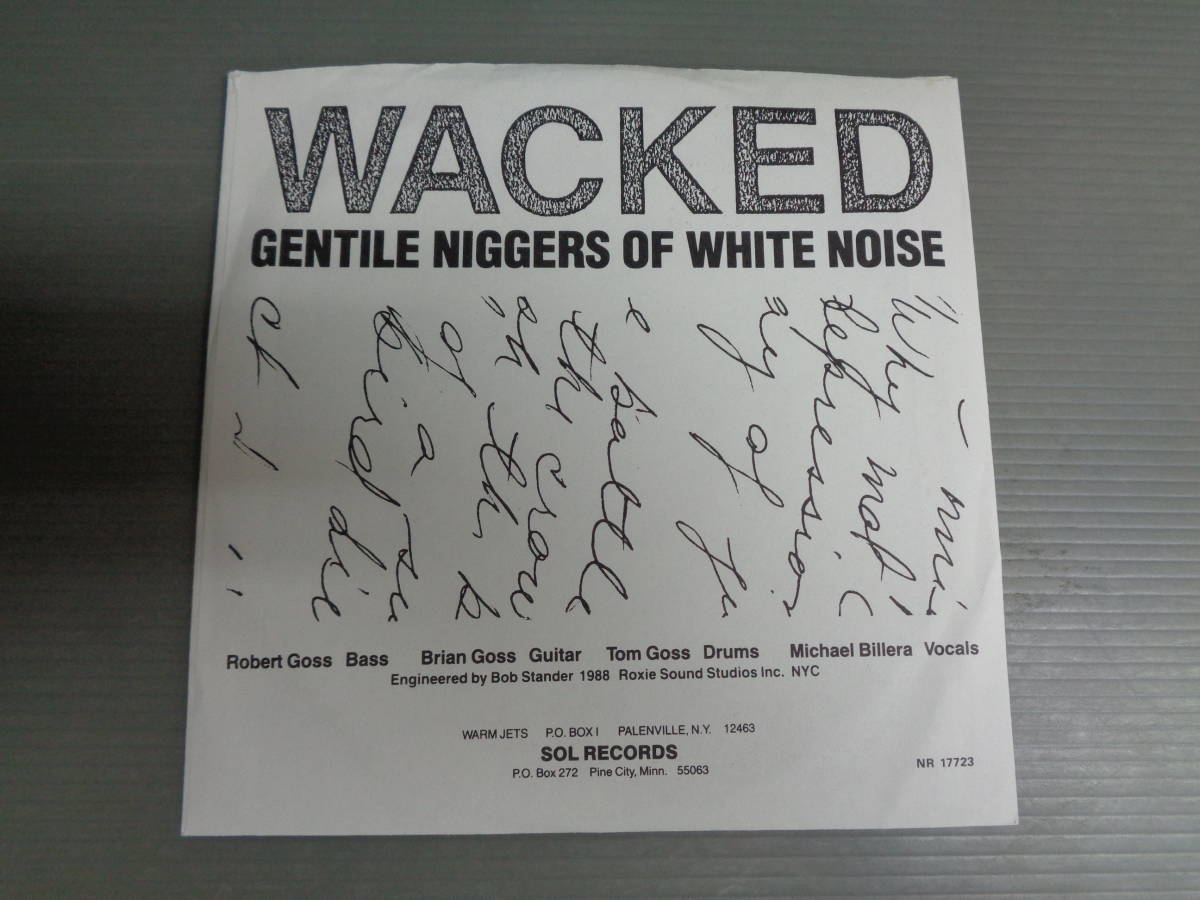 WACKED
GENTILE NIGGERS OF WHITE NOISE
Why
depression
of
battle
the
of
a
bird
die
Robert Goss Bass Brian Goss Guitar Tom Goss Drums Michael Billera Vocals
Engineered by Bob Stander 1988 Roxie Sound Studios Inc. NYC
WARM JETS P.O. BOX I PALENVILLE, N.Y. 12463
SOL RECORDS
P.O. Box 272 Pine City, Minn. 55063
NR 17723